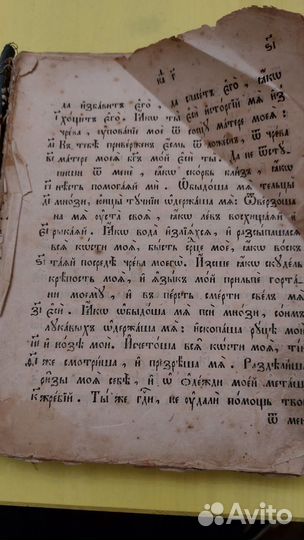 да избавитъ є҆го̀, да спасетъ є҆го̀, ꙗ҆́кѡ
хощетъ є҆го̀. Ꙗ҆́кѡ ты̀ є҆сѝ исторгїй мѧ̀ из̾
чрева, ᲂу҆пованїе моѐ ѿ сошу матере моеѧ̀:
Къ тебѣ̀ приверженъ є҆смь ѿ ложеснъ, ѿ чрева
матере моеѧ̀ бг҃ъ мой є҆сѝ ты̀. Да не ѿстꙋ
пиши ѿ менє̀, ꙗ҆́кѡ скорбь близъ, ꙗ҆́кѡ
нѣсть помогаѧй мѝ. Ѡ҆быдоша мѧ̀ тельцы
мнози, юнцы тучнїи ѡ҆держаша мѧ̀: Ѿверзоша
на мѧ̀ ᲂу҆ста̀ своѧ̀, ꙗ҆́кѡ левъ восхищаѧй и҆
рыкаѧй. Ꙗ҆́кѡ вода̀ излїѧхсѧ, и҆ разсыпашасѧ
всѧ̀ кѡсти моѧ̀, бысть срⷣце моѐ, ꙗ҆́кѡ воскъ
таѧй посредѣ̀ чрева моегѡ̀. Изсше ꙗ҆́кѡ скудель
крѣпость моѧ̀, и҆ ꙗ҆зыкъ мой прильпе горта
ни моему̀, и҆ въ персть смерти свелъ мѧ̀
є҆сѝ. Ꙗ҆́кѡ ѡ҆быдоша мѧ̀ псѝ мнози, сонмъ
лукавыхъ ѡ҆держаша мѧ̀: ископаша руцѣ̀ моѝ
и҆ нозѣ̀ мои. Исчетоша всѧ̀ кѡсти моѧ̀, тїи
же смотриша, и҆ презрѣша мѧ̀. Раздѣлиша
ризы моѧ̀ себѣ, и҆ ѡ҆ ѻ҆дежди моей меташа
жребїй. Ты̀ же гдⷭ҇и, не ᲂу҆дали помощь твою
ѿ мен
Avito